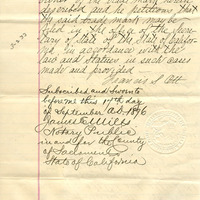 described and he petitions that
the said trade mark may be
filed in the office of the Secre-
tary of State of the State of Califor-
nia, in accordance with the
law and statues in such cases
made and provided
Francis S. Ott
Subscribed and Sworn to
before me this 17th day
of September A.D. 1876
James E. Mills
Notary Public
in and for the County
of Sacramento
State of California